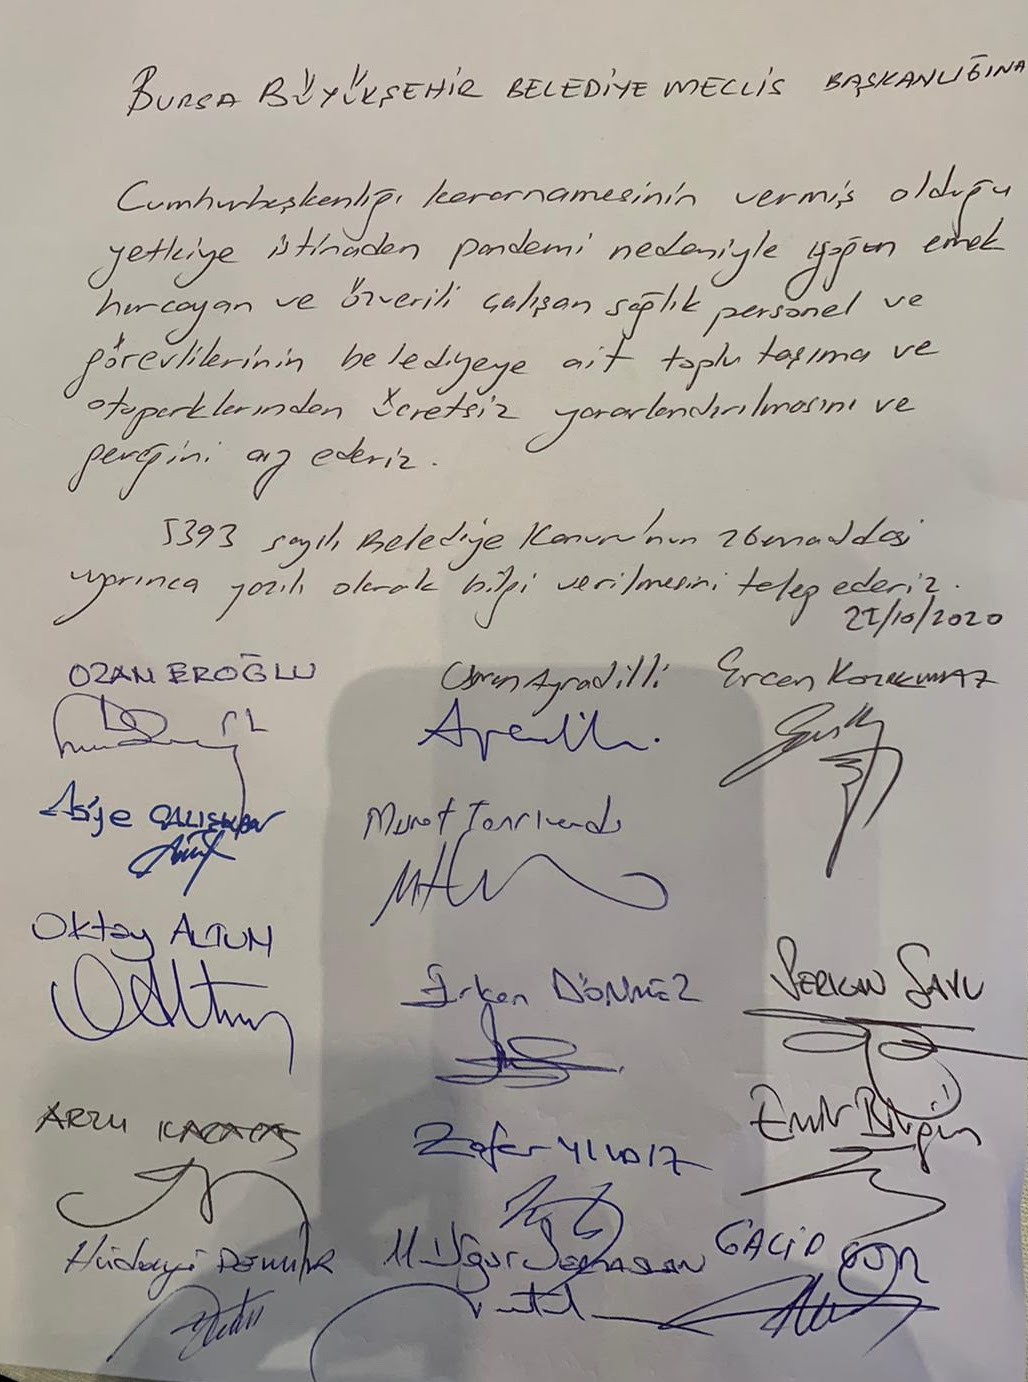 BURSA BÜYÜKŞEHİR BELEDİYE MECLİS BAŞKANLIĞINA
Cumhurbaşkanlığı kararnamesinin vermiş olduğu
yetkiye istinaden pandemi nedeniyle yoğun emek
harcayan ve özverili çalışan sağlık personel ve
görevlilerinin belediyeye ait toplu taşıma ve
otoparklarından ücretsiz yararlandırılmasını ve
gereğini arz ederiz.
5393 sayılı Belediye Kanunu'nun 26 maddesi
uyarınca yazılı olarak bilgi verilmesini talep ederiz.
21/10/2020
OZAN EROĞLU Osman Ayradilli Ercan
Asiye ÇALIŞKAN Murat
Oktay ALTUN
Erkan DÖNMEZ SERKAN
ARZU KARATAŞ Zafer YILDIZ Emir Bilgin
Hüdayi DEMİR M. Uğur GACİD